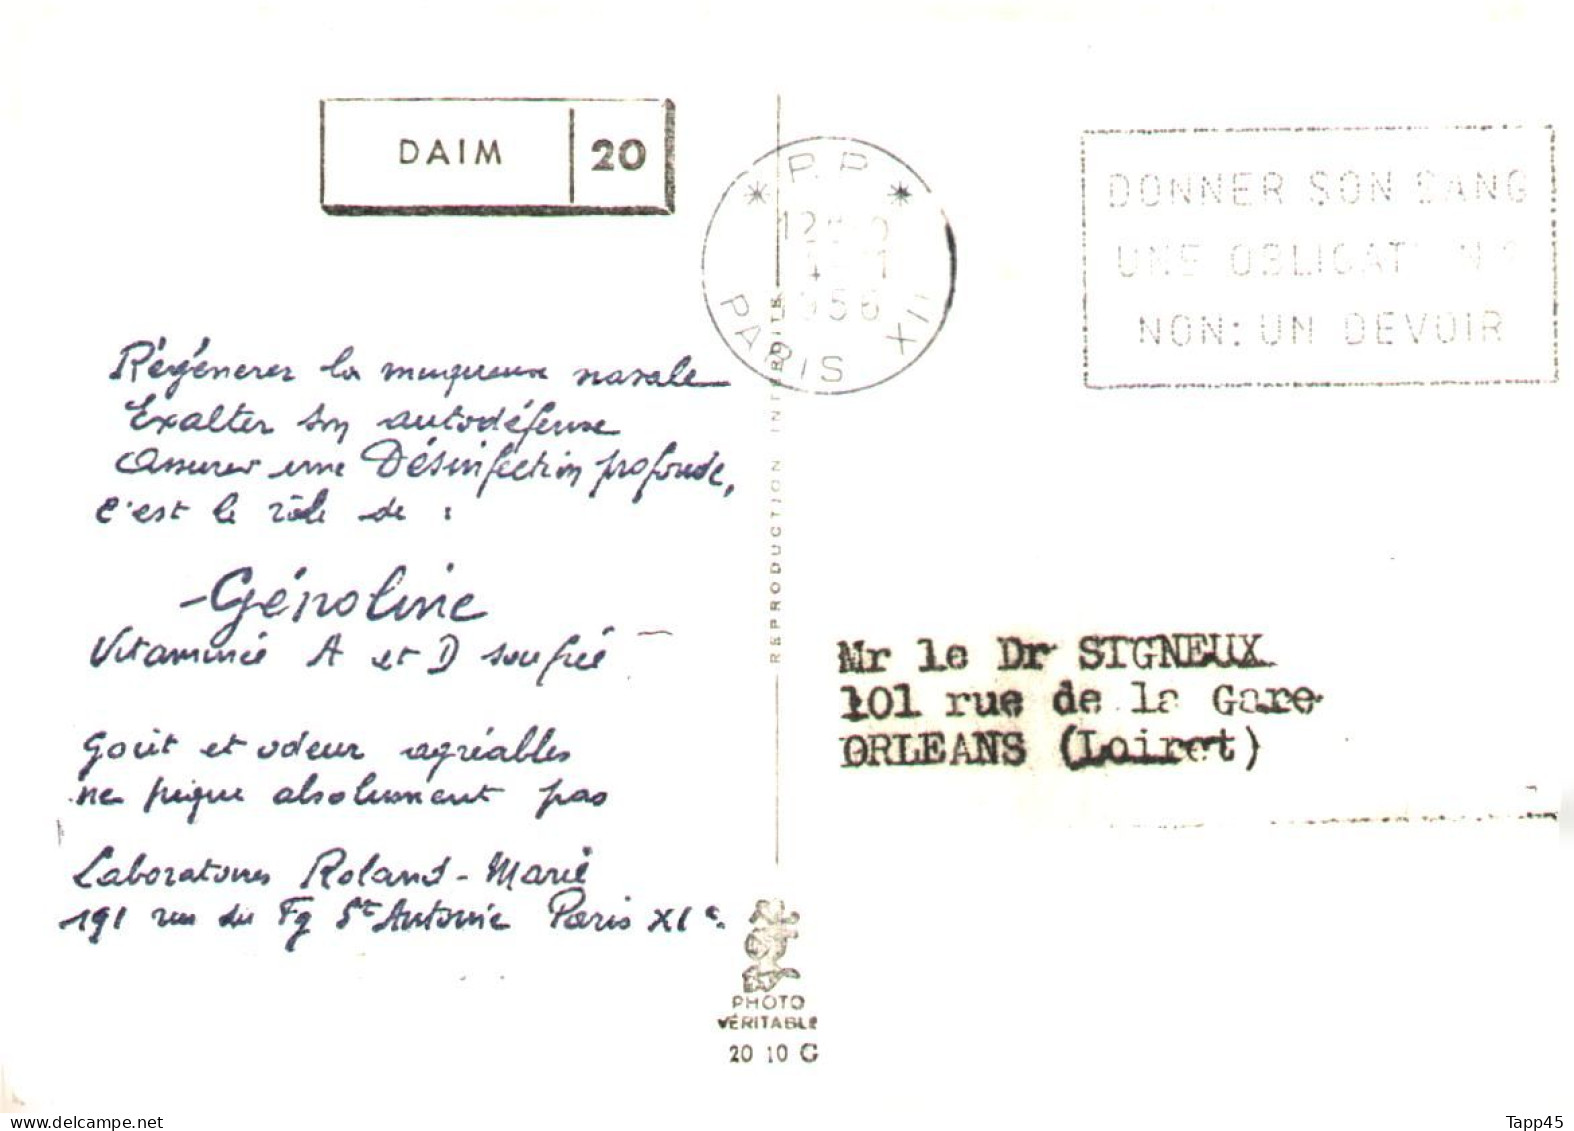 DAIM 20
P.P
PARIS XII
1956
DONNER SON SANG
UNE OBLIGAT N ?
NON: UN DEVOIR
Régénerer la muqueuse nasale
Exalter son autodéfense
Assurer une Désinfection profonde,
c'est le rôle de :
-Génoline
Vitaminée A et D soufrée
goût et odeur agréables
ne pique absolument pas
Laboratoires Roland-Marie
191 rue du Fg St Antoine Paris XIe.
REPRODUCTION INTERDITE
Mr le Dr SIGNEUX
101 rue de la Gare
ORLEANS (Loiret)
PHOTO
VÉRITABLE
20 10 G
Tapp45